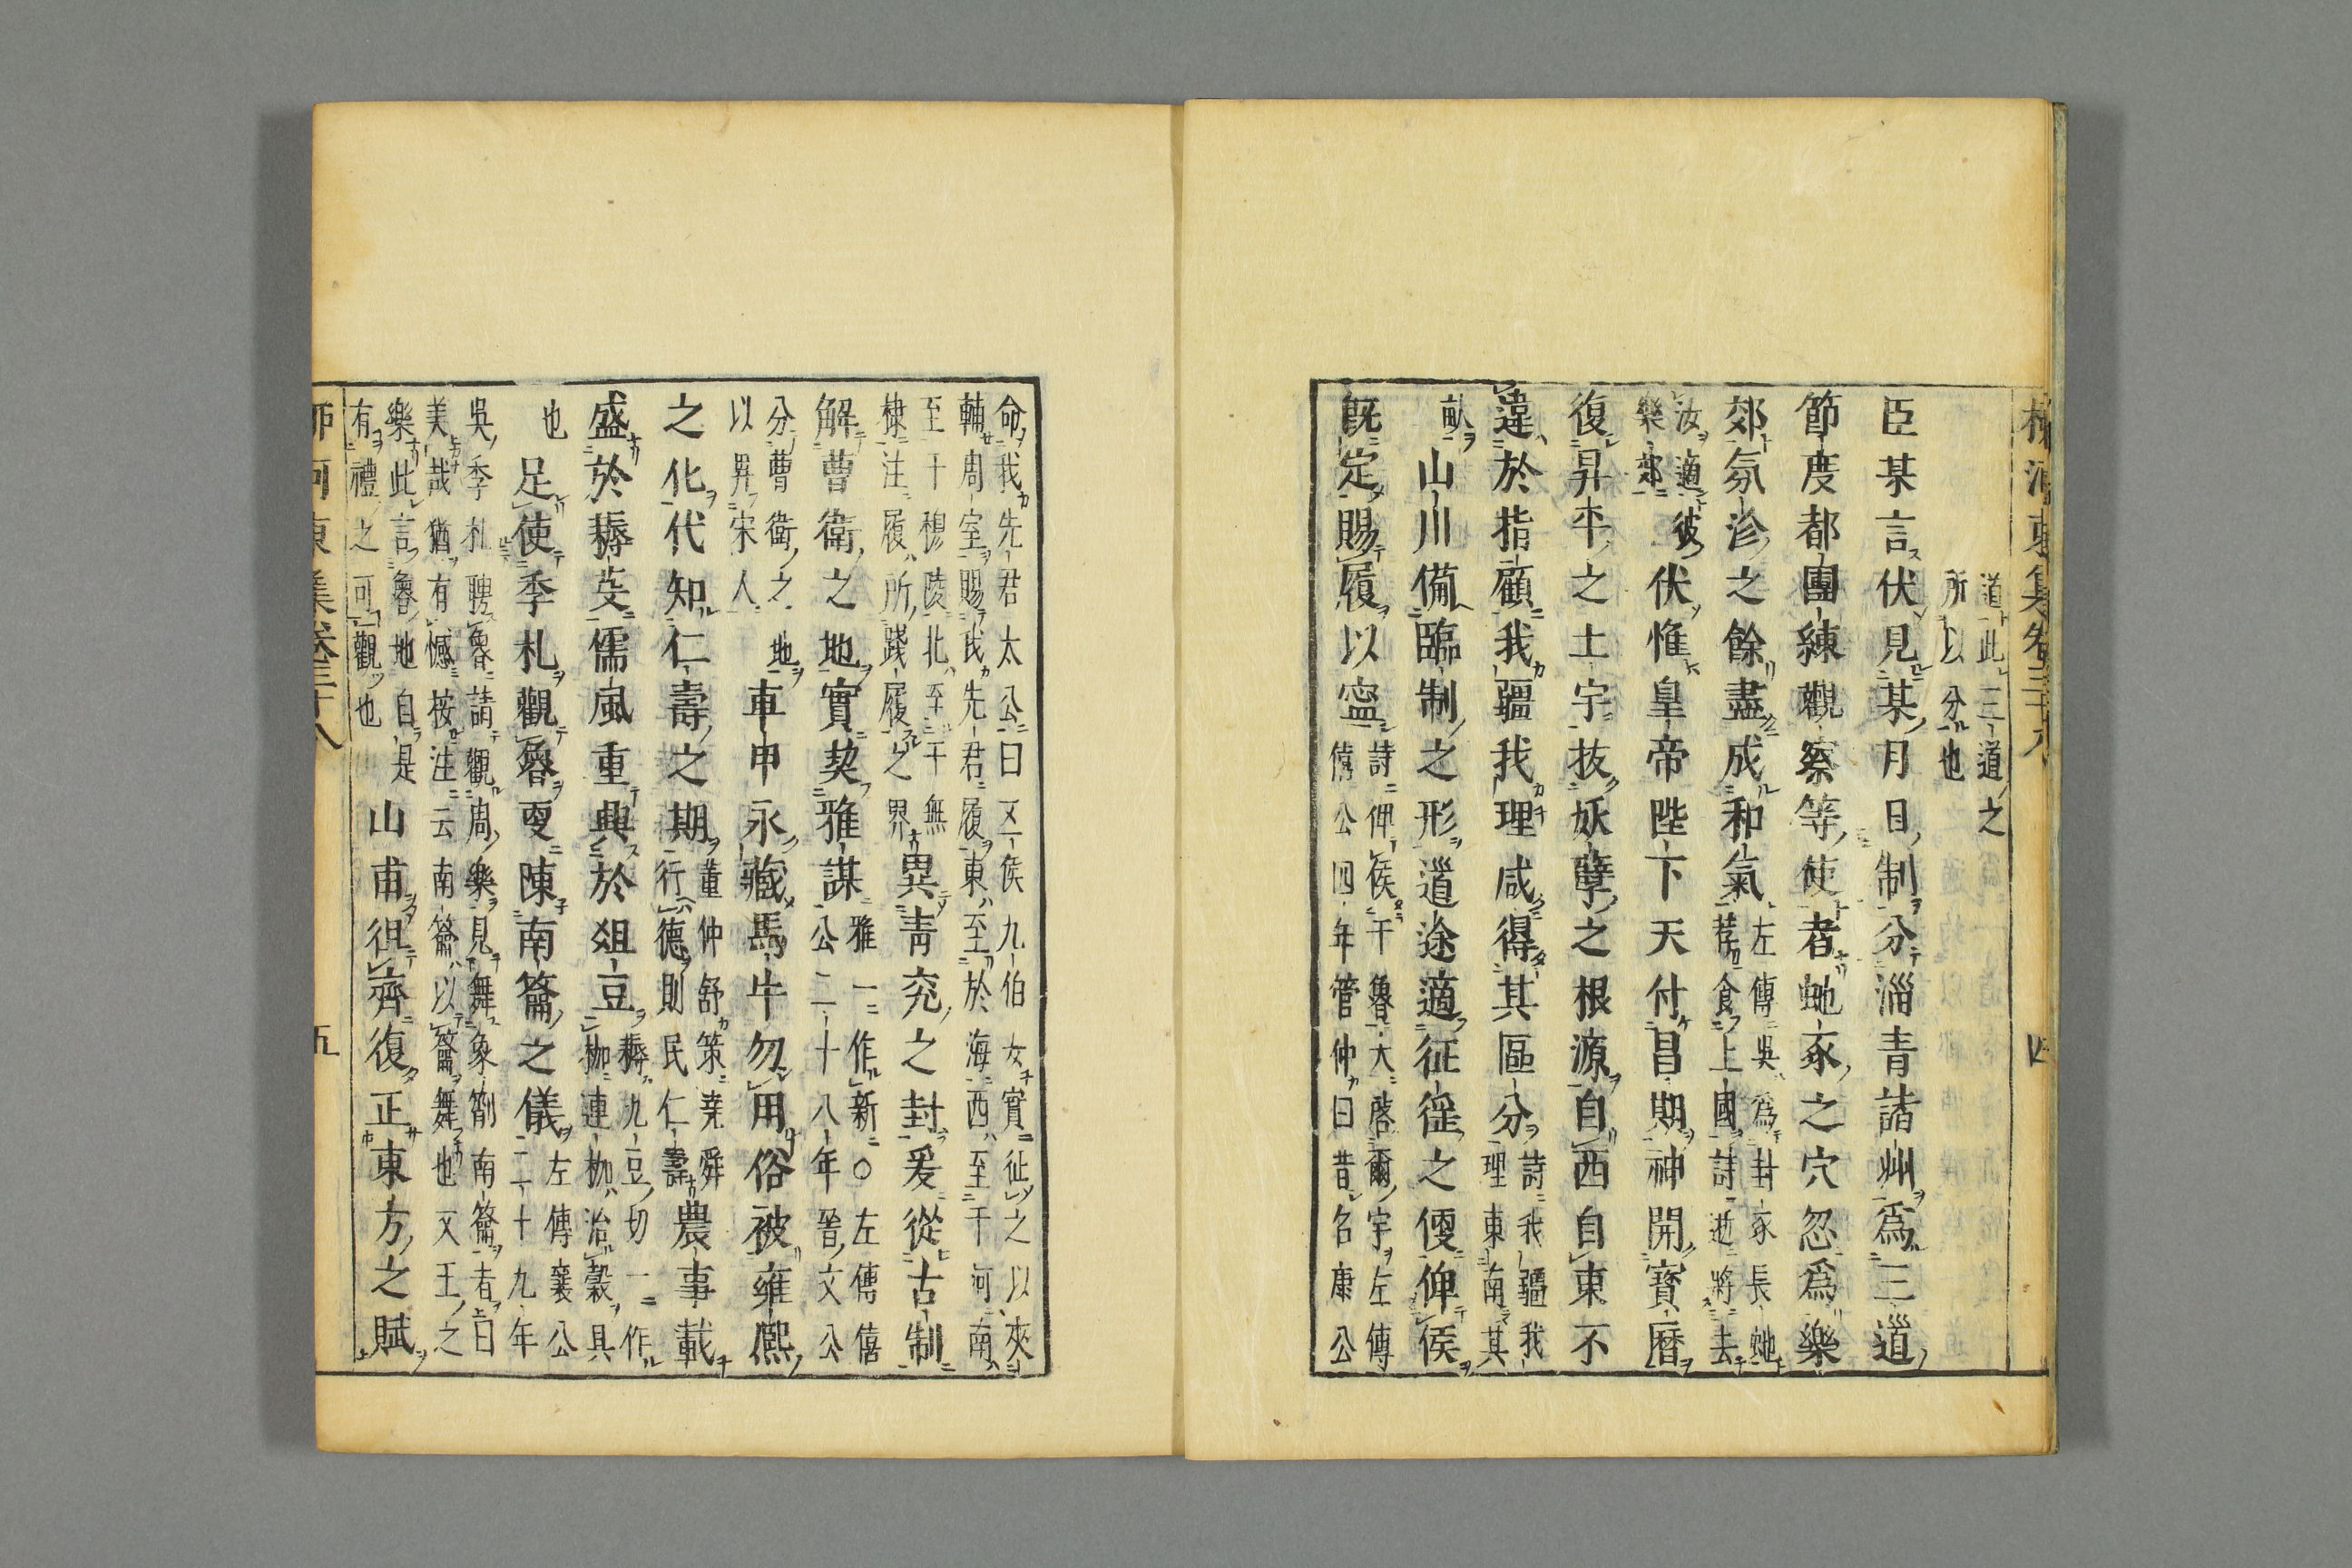 柳河東集卷三十八 四
道此三道之
所以分也
臣某言伏見某月日制分淄青諸州爲三道
節度都團練觀察等使者虵豕之穴忽爲樂
郊氛沴之餘盡成和氣
左傳吳爲封豕長虵
荐食上國詩逝將去
汝適彼
樂郊
伏惟皇帝陛下天付昌期神開寶曆
復昇平之土宇拔妖孽之根源自西自東不
違於指顧我疆我理咸得其區分
詩我疆我
理東南其
畝
山川備臨制之形道途適征徭之便俾侯
旣定賜履以寍
詩俾侯于魯大啓爾宇左傳
僖公四年管仲曰昔召康公
命我先君太公曰五侯九伯女實征之以夾
輔周室賜我先君履東至於海西至于河南
至于穆陵北至于無
棣注履所踐履之界
異青兖之封爰從古制
解曹衛之地實契雅謀
雅一作新○左傳僖
公二十八年晉文公
分曹衛之地
以畀宋人
車甲永藏馬牛勿用俗被雍熈
之化代知仁壽之期
董仲舒策堯舜
行德則民仁壽
農事載
盛於耨芟儒風重興於俎豆
耨九豆切一作
耞連耞治穀具
也
足使季札觀魯更陳南籥之儀
左傳襄公
二十九年
吳季札聘魯請觀周樂見舞象箾南籥者曰
美哉猶有憾按注云南籥以籥舞也文王之
樂此言魯地自是
有禮之可觀也
山甫徂齊復正東方之賦
柳河東集卷三十八 五